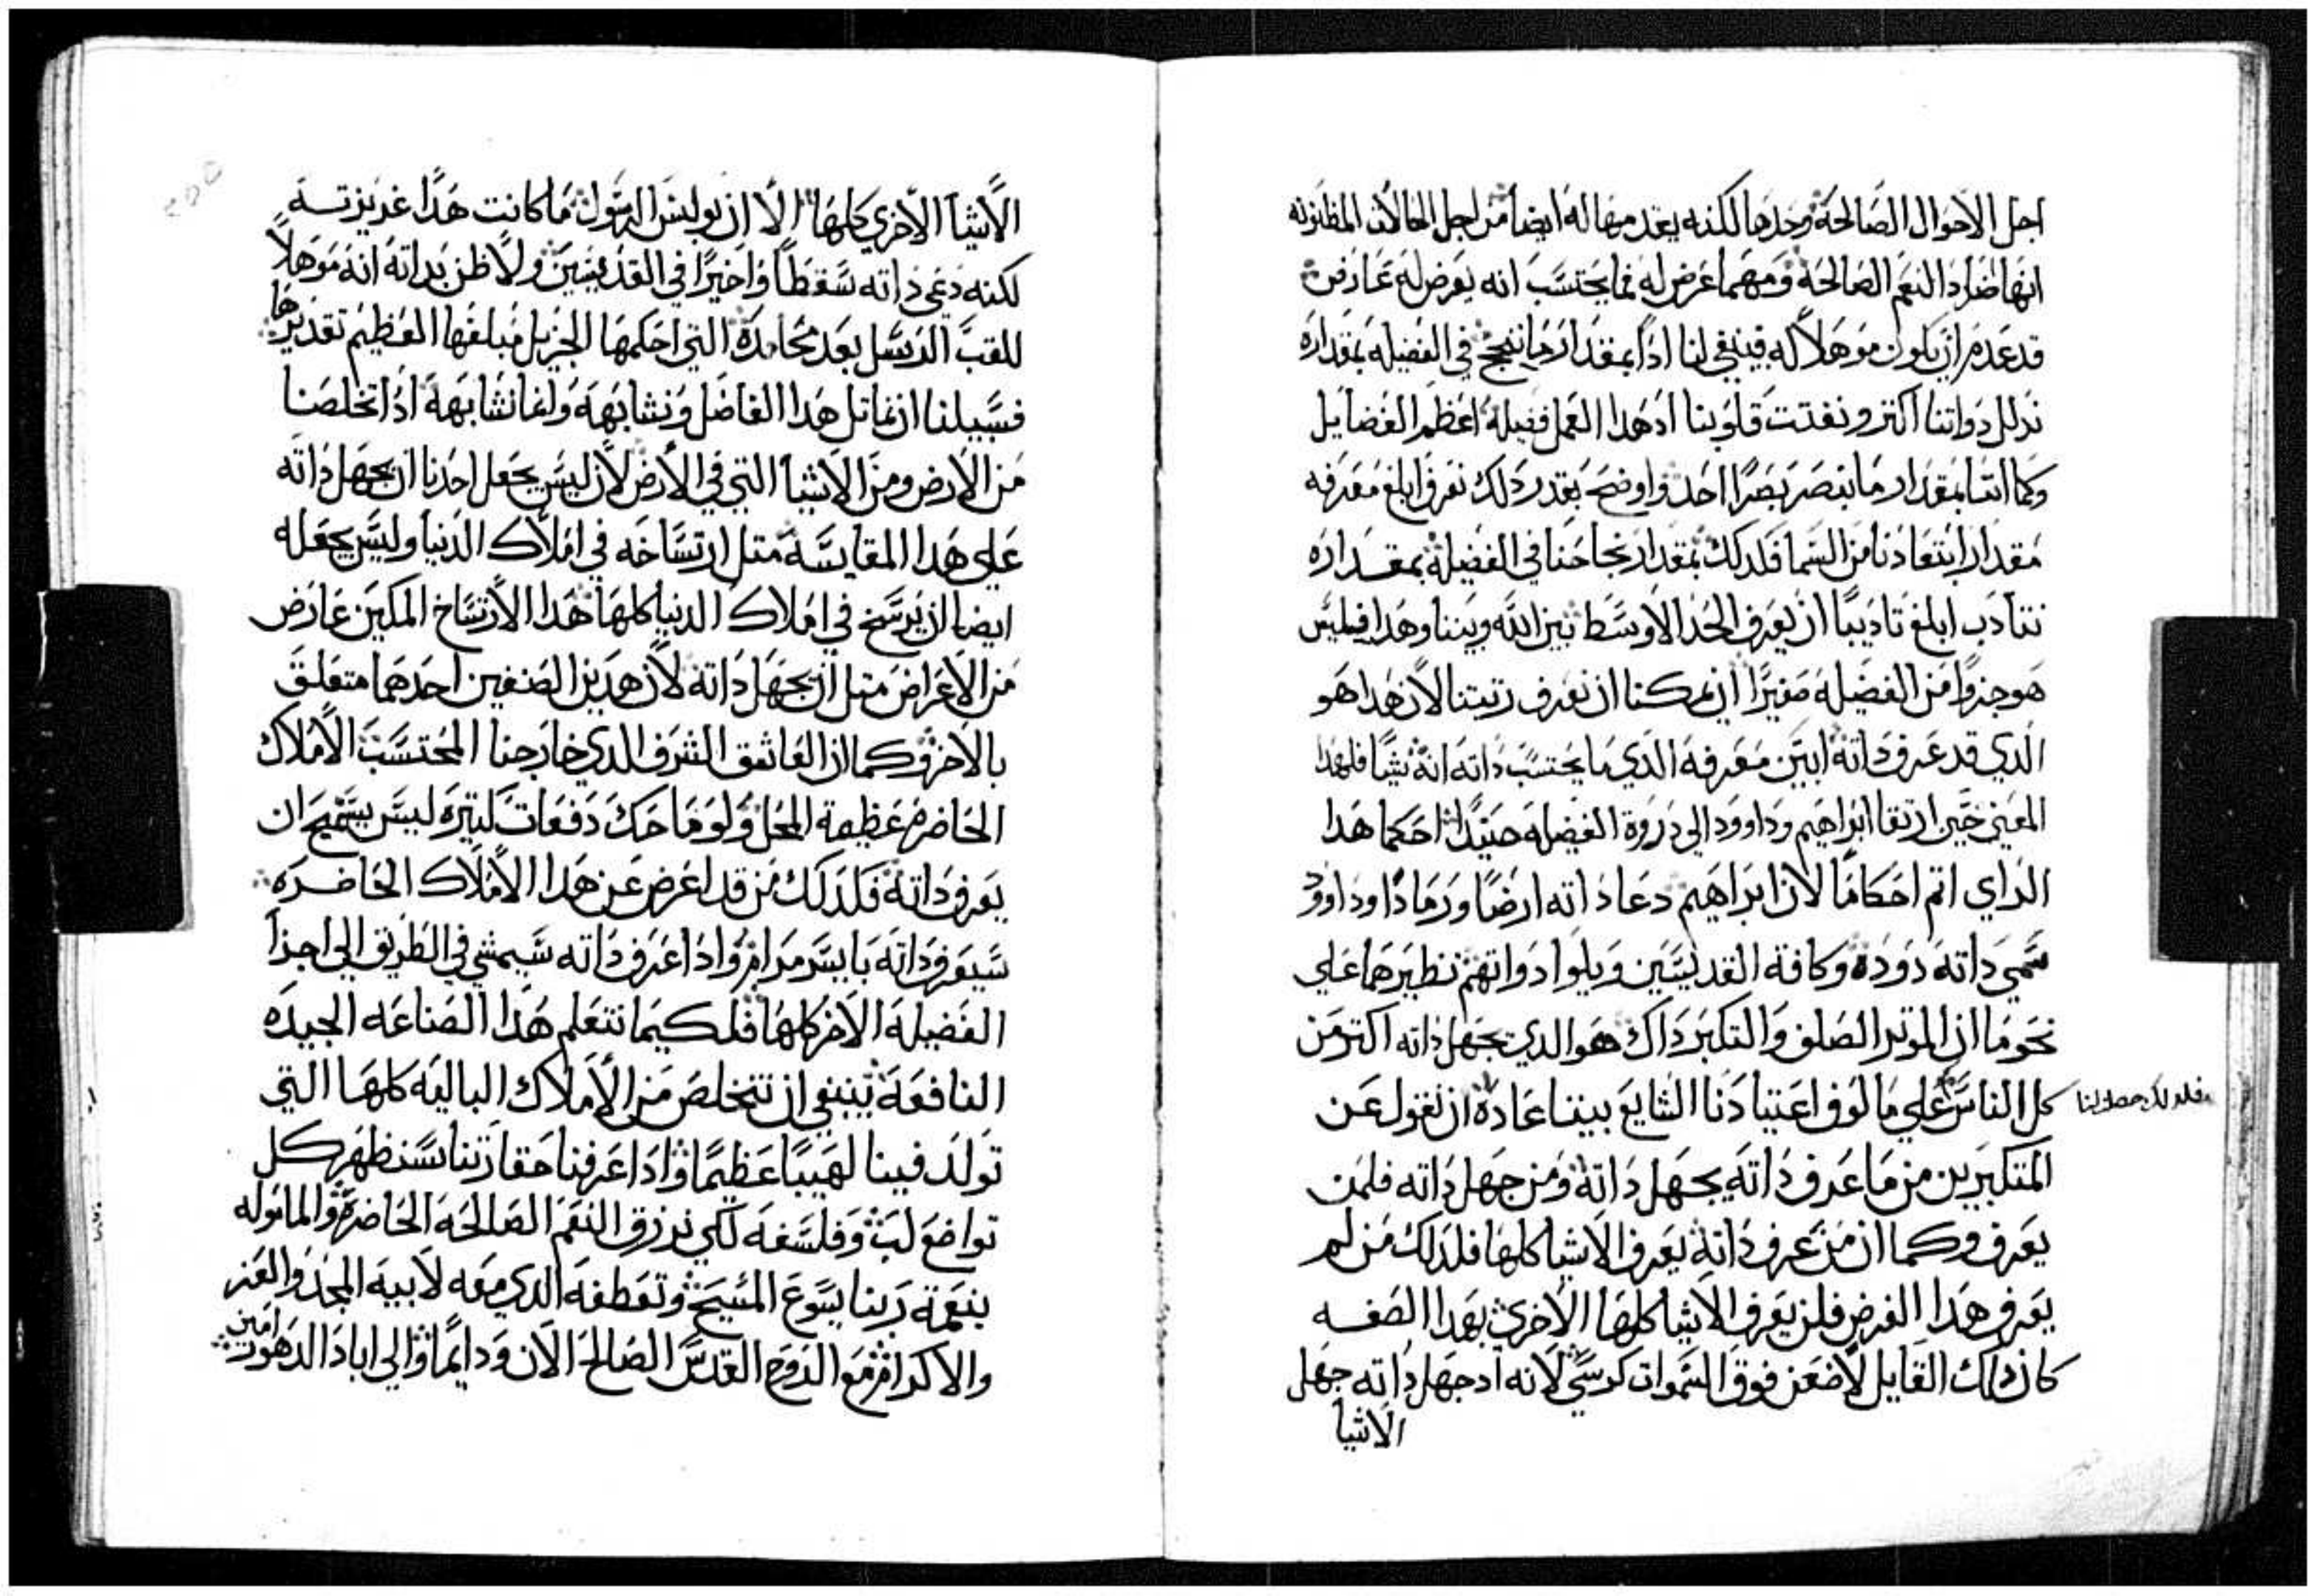 اجل الاحوال الصالحة وحدها لكنه يقدمها له ايضا من اجل الحالات المظنونه
انها اضداد النعم الصالحة ومهما عرض له فما يحتسب انه يعرض له عارض
قد عدم ان يكون موهلا له فينبغي لنا اذا بمقدار ما ننجح في الفضيله بمقداره
ندلل دواتنا اكتر ونفتت قلوبنا اد هدا العمل فضيلة اعظم الفضايل
وكما اننا بمقدار ما نبصر بصرا احد واوضح بقدر دلك نعرف ابلغ معرفه
مقدار ابتعادنا من السما فلدلك بمقدار نجاحنا في الفضيلة بمقداره
نتادب ابلغ تاديبا ان نعرف الحد الاوسط بين الله وبيننا وهدا فليس
هو جزوا من الفضيله صغيرا ان يمكنا ان نعرف رتبتنا لان هدا هو
الدي قد عرف داته ابين معرفه الدي ما يحتسب داته انه شيا فلهدا
المعني حين ارتقا ابراهيم وداوود الي دروة الفضيله حينيد احكما هدا
الراي اتم احكاما لان ابراهيم دعا داته ارضا ورمادا وداوود
سمي داته دودة وكافة القديسين ويلوا دواتهم نظيرهما علي
نحو ما ان الموتر الصلف والتكبر داك هو الدي يجهل داته اكتر من
كل الناس علي مالوف اعتيادنا الشايع بيننا عادة ان نقول عن
فلدلك حصل لنا
المتكبرين من ما عرف داته يجهل داته ومن جهل داته فلمن
يعرف وكما ان من عرف داته يعرف الاشيا كلها فلدلك من لم
يعرف هدا الغرض فلن يعرف الاشيا كلها الاخري بهدا الصفه
كان داك القايل لاضعن فوق السموات كرسي لانه اد جهل داته جهل
الاشيا
الاشيا الاخري كلها الا ان بولس الرسول ما كانت هدا غريزته
لكنه دعي داته سقطا واخيرا في القديسين ولا ظن بداته انه موهلا
للقب الرسل بعد محامده التي احكمها الجزيل مبلغها العظيم تقديرها
فسبيلنا ان نماتل هدا الفاضل ونشابهه وانما نشابهه ادا تخلصنا
من الارض ومن الاشيا التي في الارض لان ليس يجعل احدنا ان يجهل داته
علي هدا المقايسة متل ارتساخه في املاك الدنيا وليس يجعله
ايضا ان يرسخ في املاك الدنيا كلها هدا الارتساخ المكين عارض
من الاعراض متل ان يجهل داته لان هدين الصنفين احدهما متعلق
بالاخر وكما ان العاشق الشرف الدي خارجنا المحتسب الاملاك
الحاضره عظيمة المحل ولو ماحك دفعات كتيره ليس يستميح ان
يعرف داته فلدلك من قد اعرض عن هدا الاملاك الحاضره
سيعرف داته بايسر مرام وادا عرف داته سيمشي في الطريق الي اجزا
الفضيله الاخر كلها فلكيما نتعلم هدا الصناعه الجيده
النافعة ينبغي ان نتخلص من الاملاك الباليه كلها التي
تولد فينا لهيبا عظيما وادا عرفنا حقارتنا سنظهر كل
تواضع لب وفلسفه لكي نرزق النعم الصالحه الحاضرة والمامولة
بنعمة ربنا يسوع المسيح وتعطفه الدي معه لابيه المجد والعز
والاكرام مع الروح القدس الصالح الان ودايما والي اباد الدهور امين